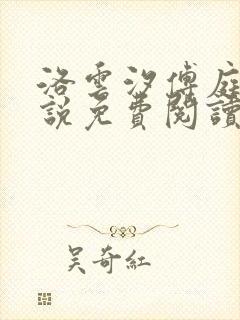 洛雲汐傅庭
說免費閱讀
吴奇紅